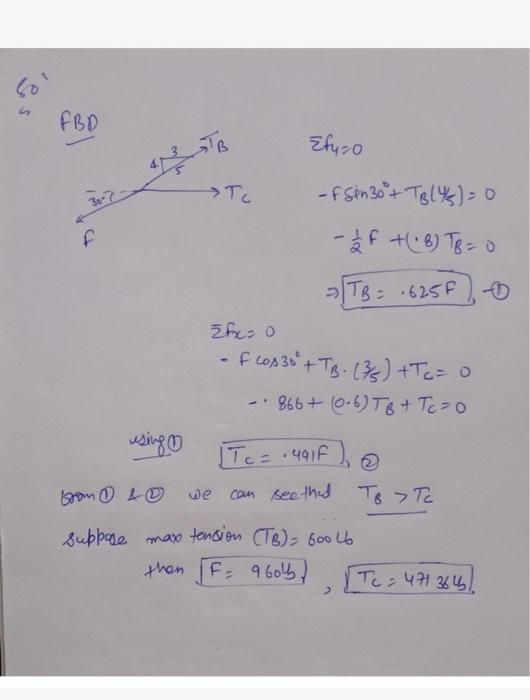 so'
FBD
3
TB
4
5
30°
TC
F
Σfy=0
-f sin30° + TB(4/5) = 0
-1/2 F + (.8) TB = 0
⇒ TB = .625F ①
Σfx = 0
- f cos30° + TB.(3/5) + TC = 0
-.866 + (0.6) TB + TC = 0
using ①
TC = .491F ②
from ① & ② we can see that TB > TC
suppose max tension (TB) = 600 lb
then F = 960 lb , TC = 471.36 lb